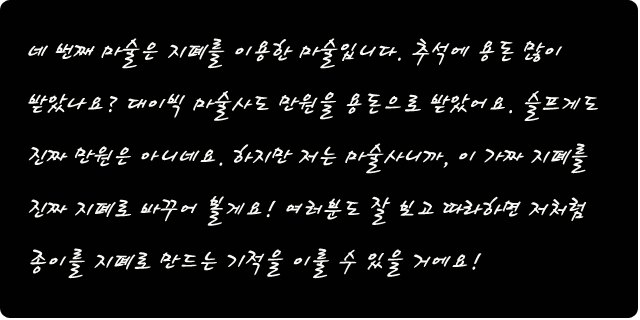 네 번째 마술은 지폐를 이용한 마술입니다. 추석에 용돈 많이
받았나요? 대이빅 마술사도 만원을 용돈으로 받았어요. 슬프게도
진짜 만원은 아니네요. 하지만 저는 마술사니까, 이 가짜 지폐를
진짜 지폐로 바꾸어 볼게요! 여러분도 잘 보고 따라하면 저처럼
종이를 지폐로 만드는 기적을 이룰 수 있을 거에요!